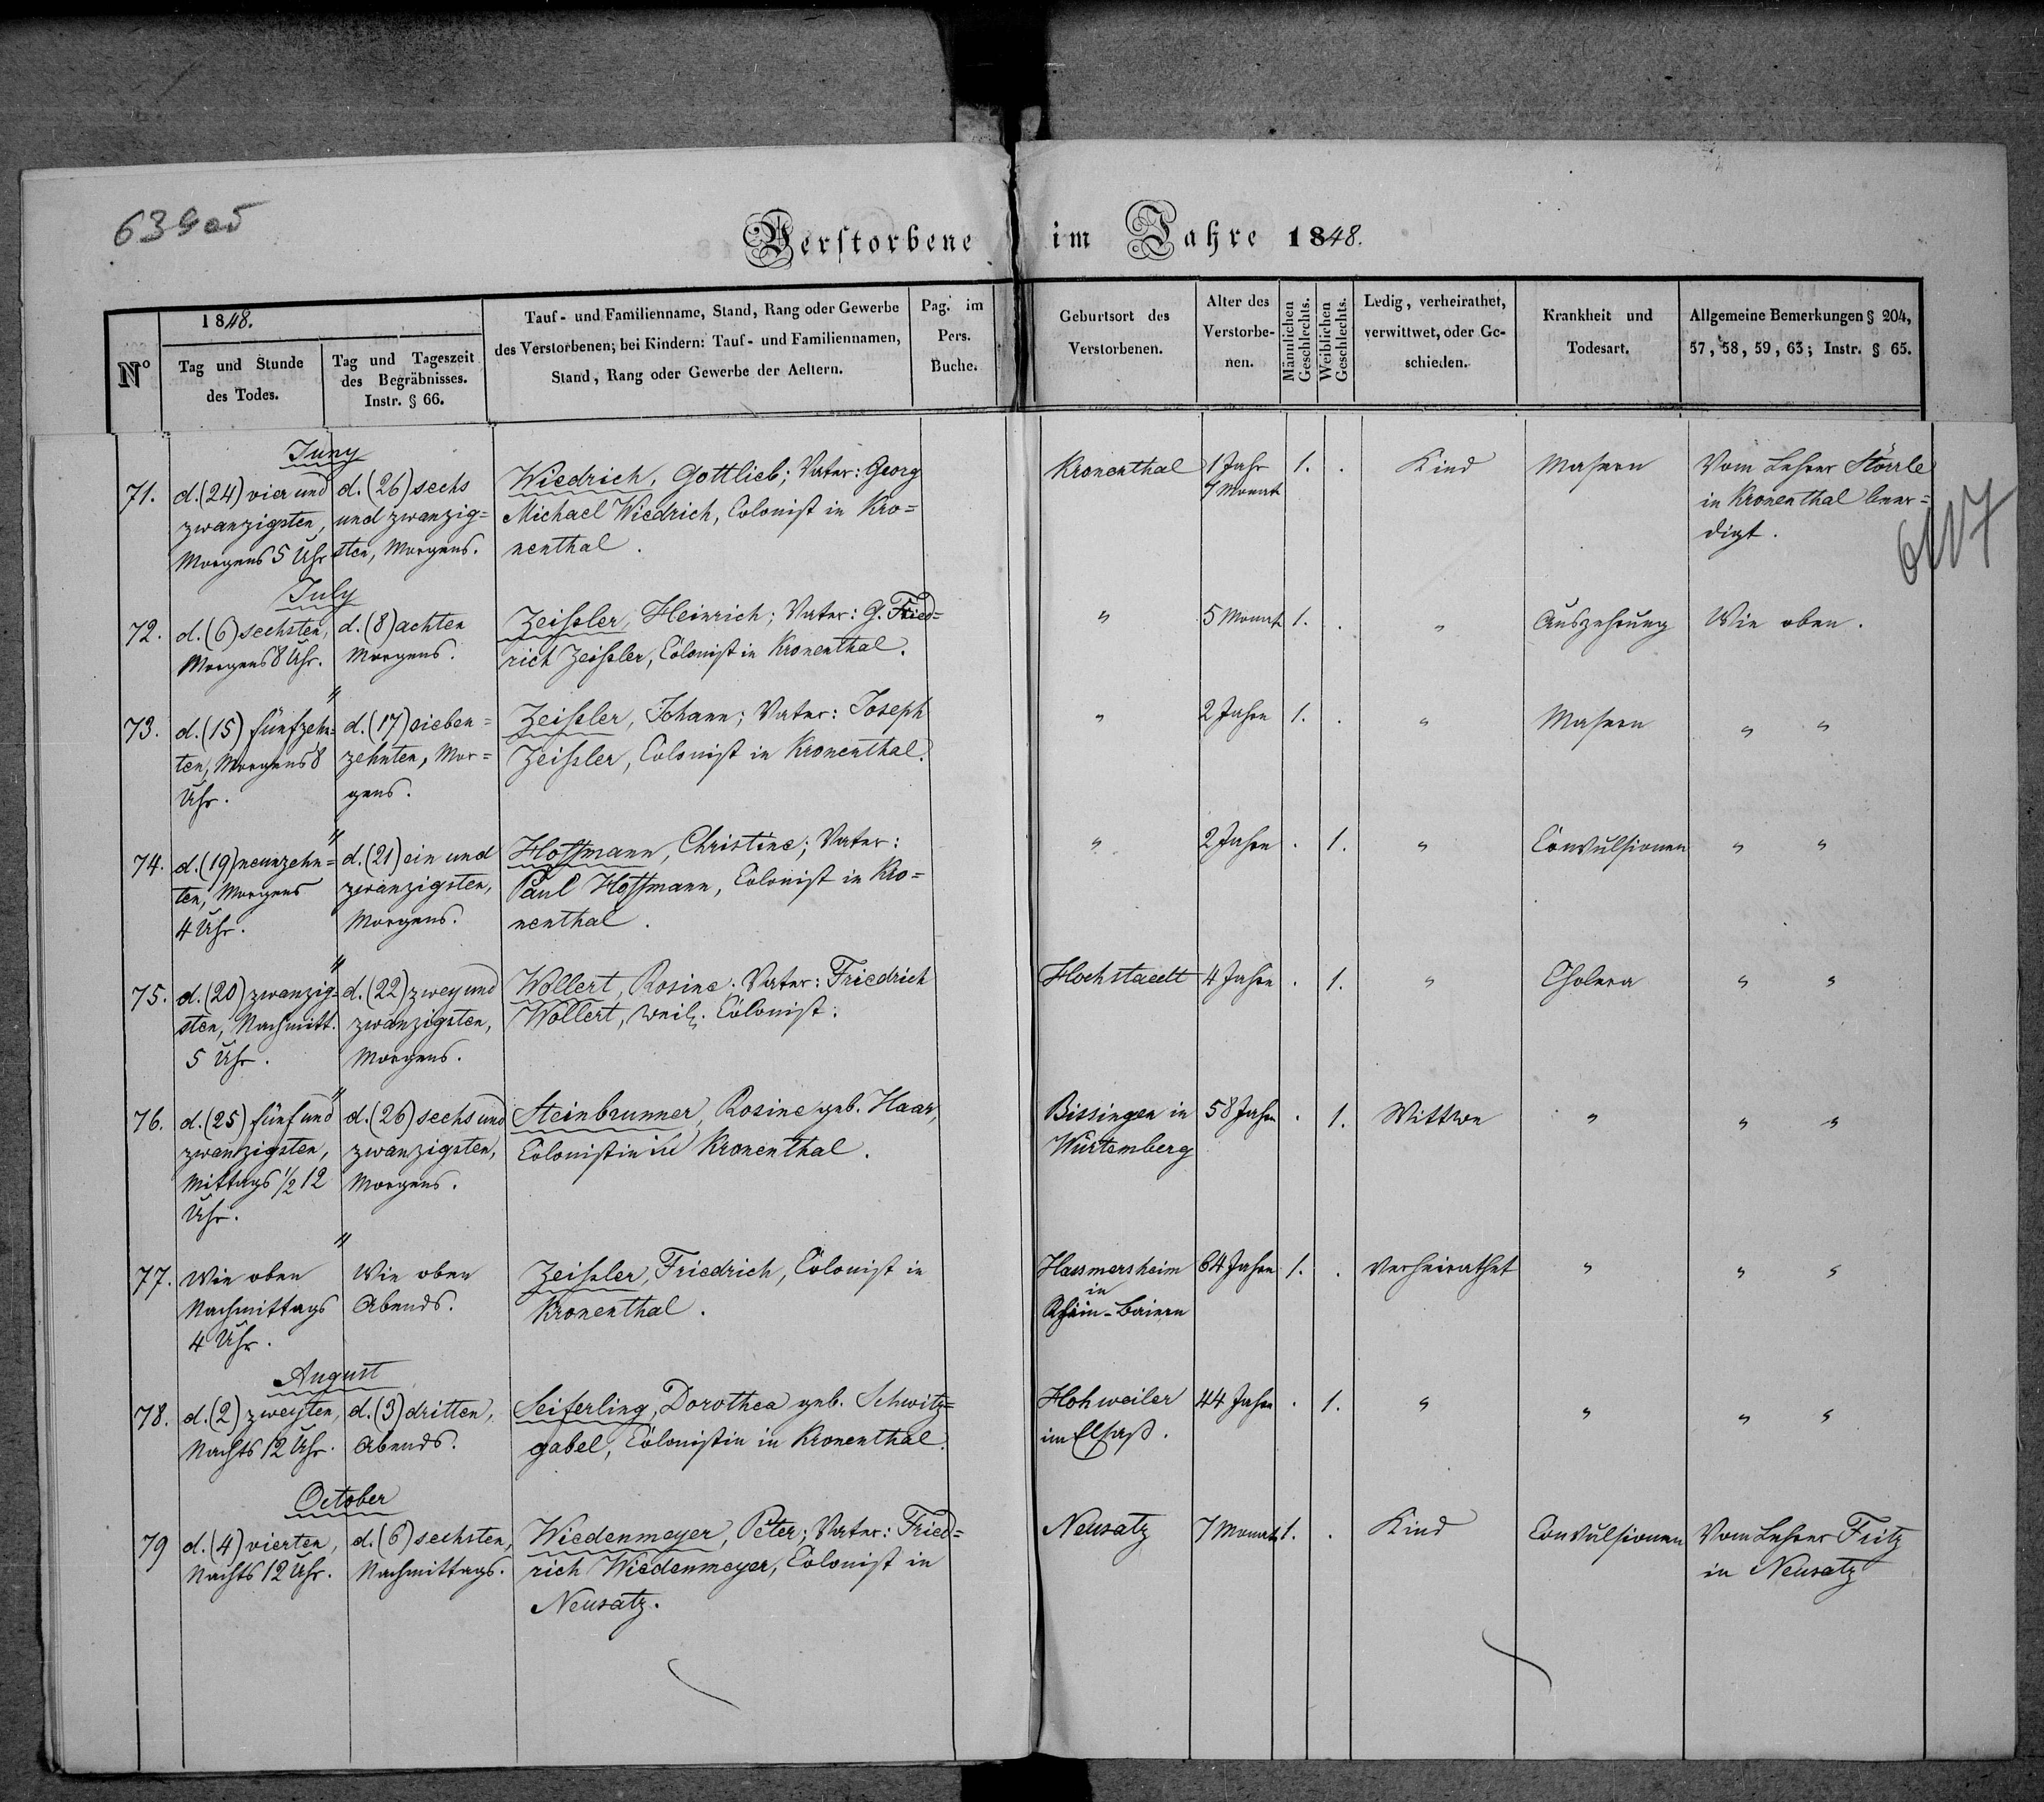 639 об
Verstorbene im Jahre 1848.
Nº
1848.
Tag und Stunde
des Todes.
Tag und Tageszeit
des Begräbnisses.
Instr. § 66.
Tauf- und Familienname, Stand, Rang oder Gewerbe
des Verstorbenen; bei Kindern: Tauf- und Familiennamen,
Stand, Rang oder Gewerbe der Aeltern.
Pag. im
Pers.
Buche.
Geburtsort des
Verstorbenen.
Alter des
Verstorbe-
nen.
Männlichen
Geschlechts.
Weiblichen
Geschlechts.
Ledig, verheirathet,
verwittwet, oder Ge-
schieden.
Krankheit und
Todesart.
Allgemeine Bemerkungen § 204,
57, 58, 59, 63; Instr. § 65.
Juny
71.
d. (24) vier und
zwanzigsten,
Morgens 5 Uhr
d. (26) sechs
und zwanzig=
sten, Morgens.
Wiedrich, Gottlieb; Vater: Georg
Michael Wiedrich, Colonist in Kro=
nenthal.
Kronenthal
1 Jahr
7 Monat
1. .
Kind
Masern
Vom Lehrer Störrle
in Kronenthal beer=
digt.
July
72.
d. (6) sechsten,
Morgens 8 Uhr.
d. (8) achten
Morgens.
Zeißler, Heinrich; Vater: G. Fried=
rich Zeißler, Colonist in Kronenthal.
"
5 Monat
1. .
"
Auszehrung
Wie oben.
"
73.
d. (15) fünfzehn=
ten, Morgens 8
Uhr.
d. (17) sieben=
zehnten, Mor=
gens.
Zeißler, Johann; Vater: Joseph
Zeißler, Colonist in Kronenthal.
"
2 Jahren
1. .
"
Masern
" "
"
74.
d. (19) neunzehn=
ten, Morgens
4 Uhr.
d. (21) ein und
zwanzigsten,
Morgens.
Hoffmann, Christine; Vater:
Paul Hoffmann, Colonist in Kro=
nenthal.
"
2 Jahren
. 1.
"
Convulsionen
" "
"
75.
d. (20) zwanzig=
sten, Nachmitt.
5 Uhr.
d. (22) zwey und
zwanzigsten,
Morgens.
Wollert, Rosine. Vater: Friedrich
Wollert, weil. Colonist.
Hochstaedt
4 Jahren
. 1.
"
Cholera
" "
"
76.
d. (25) fünf und
zwanzigsten,
Mittags 1/2 12
Uhr.
d. (26) sechs und
zwanzigsten,
Morgens.
Steinbrunner, Rosine geb. Haar,
Colonistin in Kronenthal.
Bissingen in
Würtemberg
58 Jahren
. 1.
Wittwe
"
" "
"
77.
Wie oben
Nachmittags
4 Uhr.
Wie oben
Abends.
Zeißler, Friedrich, Colonist in
Kronenthal.
Hassmersheim
in
Rhein-Baiern
64 Jahren
1. .
Verheirathet
"
" "
August
78.
d. (2) zweyten,
Nachts 12 Uhr.
d. (3) dritten,
Abends.
Seiferling, Dorothea geb. Schwitz=
gabel, Colonistin in Kronenthal.
Hohweiler
im Elsaß.
44 Jahren
. 1.
"
"
" "
October
79
d. (4) vierten,
Nachts 12 Uhr.
d. (6) sechsten,
Nachmittags.
Wiedenmeyer, Peter; Vater: Fried=
rich Wiedenmeyer, Colonist in
Neusatz.
Neusatz
7 Monat
1. .
Kind
Convulsionen
Vom Lehrer Fritz
in Neusatz